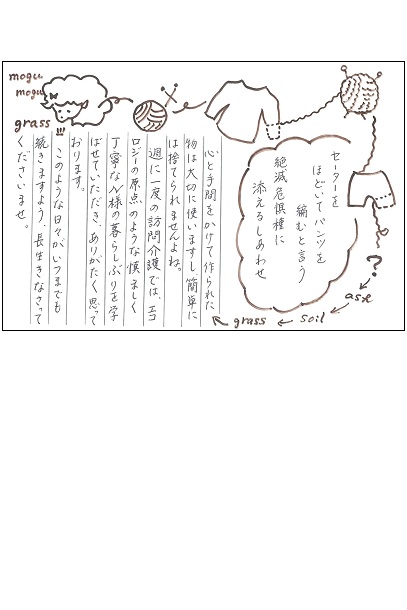 mogu
mogu
grass!!!
セーターを
ほどいてパンツを
編むと言う
絶滅危惧種に
添えるしあわせ
?
ase
soil
grass
心と手間をかけて作られた
物は大切に使いますし、簡単に
は捨てられませんよね。
週に一度の訪問介護では、エコ
ロジーの原点のような慎ましく
丁寧なN様の暮らしぶりを学
ばせていただき、ありがたく思って
おります。
このような日々がいつまでも
続きますよう、長生きなさって
くださいませ。